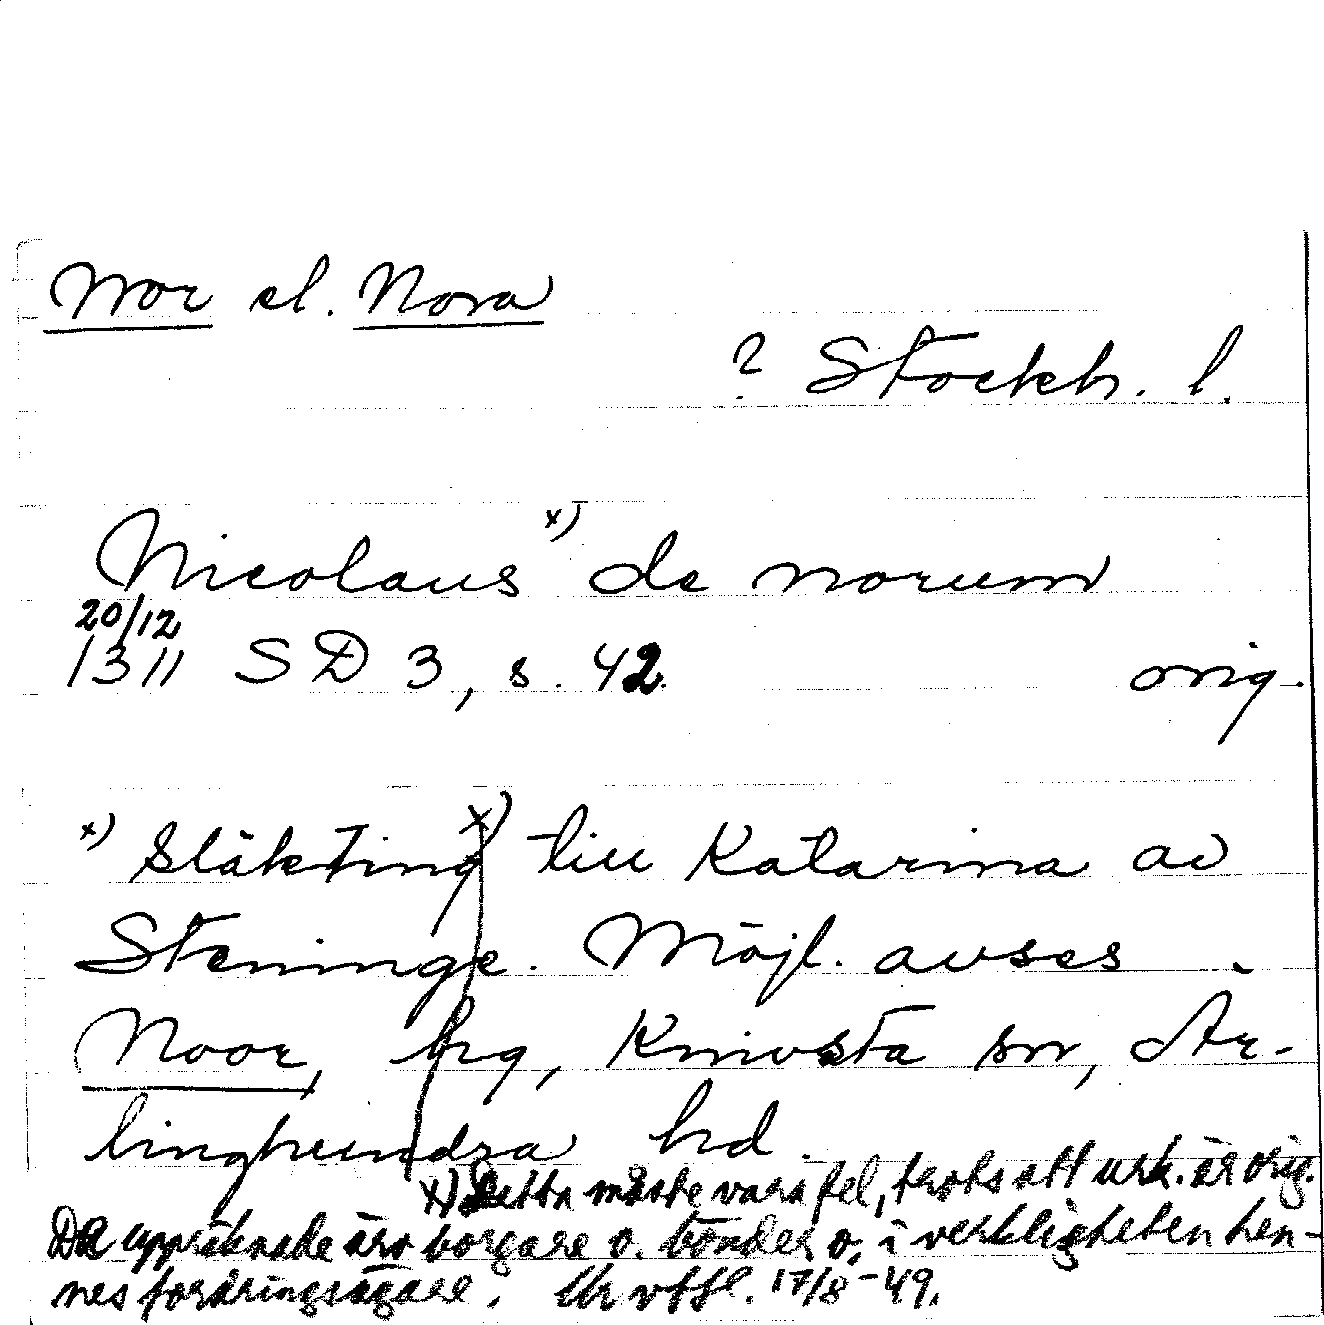 Nor el. Nora
? Stockh. l.
Nicolaus x) de norum
20/12
1311 SD 3, s. 42 orig.
x) Släkting x) till Katarina av
Steninge. Möjl. avses
Noor, hg, Knivsta sn, Är-
linghundra hd.
x) Detta måste vara fel, trots att urk. är orig.
De uppräknade äro borgare o. bönder o. i verkligheten hen-
nes fordringsägare. 17/8-49.